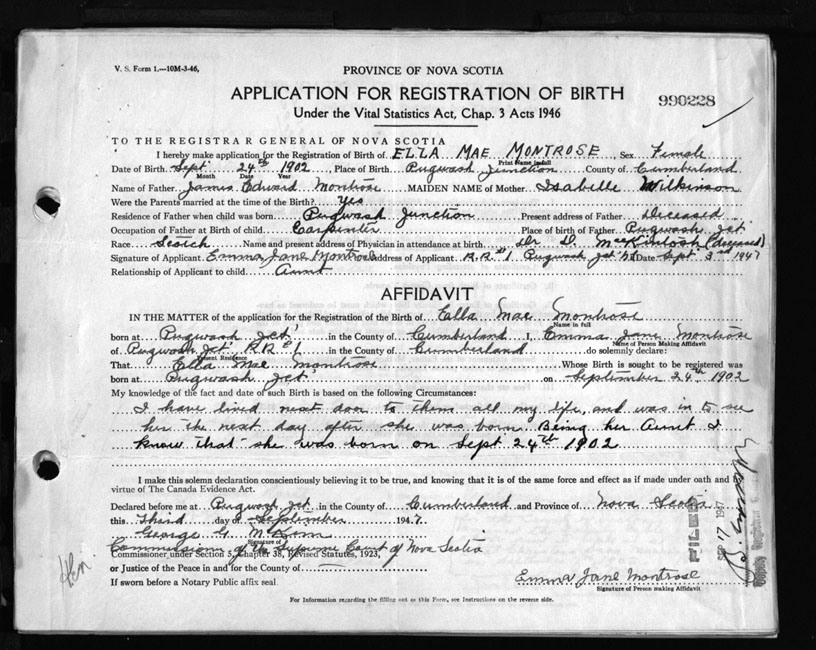 V. S. Form 1.—10M-3-46,
PROVINCE OF NOVA SCOTIA
APPLICATION FOR REGISTRATION OF BIRTH
990228
Under the Vital Statistics Act, Chap. 3 Acts 1946
TO THE REGISTRAR GENERAL OF NOVA SCOTIA
I hereby make application for the Registration of Birth of ELLA MAE MONTROSE, Sex Female
Print Name in full
Date of Birth Sept 24th 1902, Place of Birth Pugwash Junction County of Cumberland
Month Date Year
Name of Father James Edward Montrose MAIDEN NAME of Mother Isabelle Wilkinson
Were the Parents married at the time of the Birth? Yes
Residence of Father when child was born Pugwash Junction Present address of Father Deceased
Occupation of Father at Birth of child Carpenter Place of birth of Father Pugwash Jct
Race Scotch Name and present address of Physician in attendance at birth Dr D. MacKintosh (deceased)
Signature of Applicant Emma Jane Montrose Address of Applicant R.R.#1 Pugwash Jct NS Date Sept 3rd 1947
Relationship of Applicant to child Aunt
AFFIDAVIT
IN THE MATTER of the application for the Registration of the Birth of Ella Mae Montrose
Name in full
born at Pugwash Jct in the County of Cumberland I, Emma Jane Montrose
Name of Person Making Affidavit
of Pugwash Jct R.R #1 in the County of Cumberland do solemnly declare:
Present Residence
That Ella Mae Montrose Whose Birth is sought to be registered was
born at Pugwash Jct on September 24th 1902
My knowledge of the fact and date of such Birth is based on the following Circumstances:
I have lived next door to them all my life, and was in to see
her the next day after she was born. Being her Aunt I
know that she was born on Sept 24th 1902
I make this solemn declaration conscientiously believing it to be true, and knowing that it is of the same force and effect as if made under oath and by
virtue of The Canada Evidence Act.
Declared before me at Pugwash Jct in the County of Cumberland and Province of Nova Scotia
this Third day of September 1947
George G.
Signature of
Commissioner of the Supreme Court of Nova Scotia
Commissioner under Section 5, Chapter 38, Revised Statutes, 1923,
or Justice of the Peace in and for the County of
If sworn before a Notary Public affix seal
Emma Jane Montrose
Signature of Person making Affidavit
For Information regarding the filling out of this Form, see Instructions on the reverse side.
FILED
SEP 17 1947